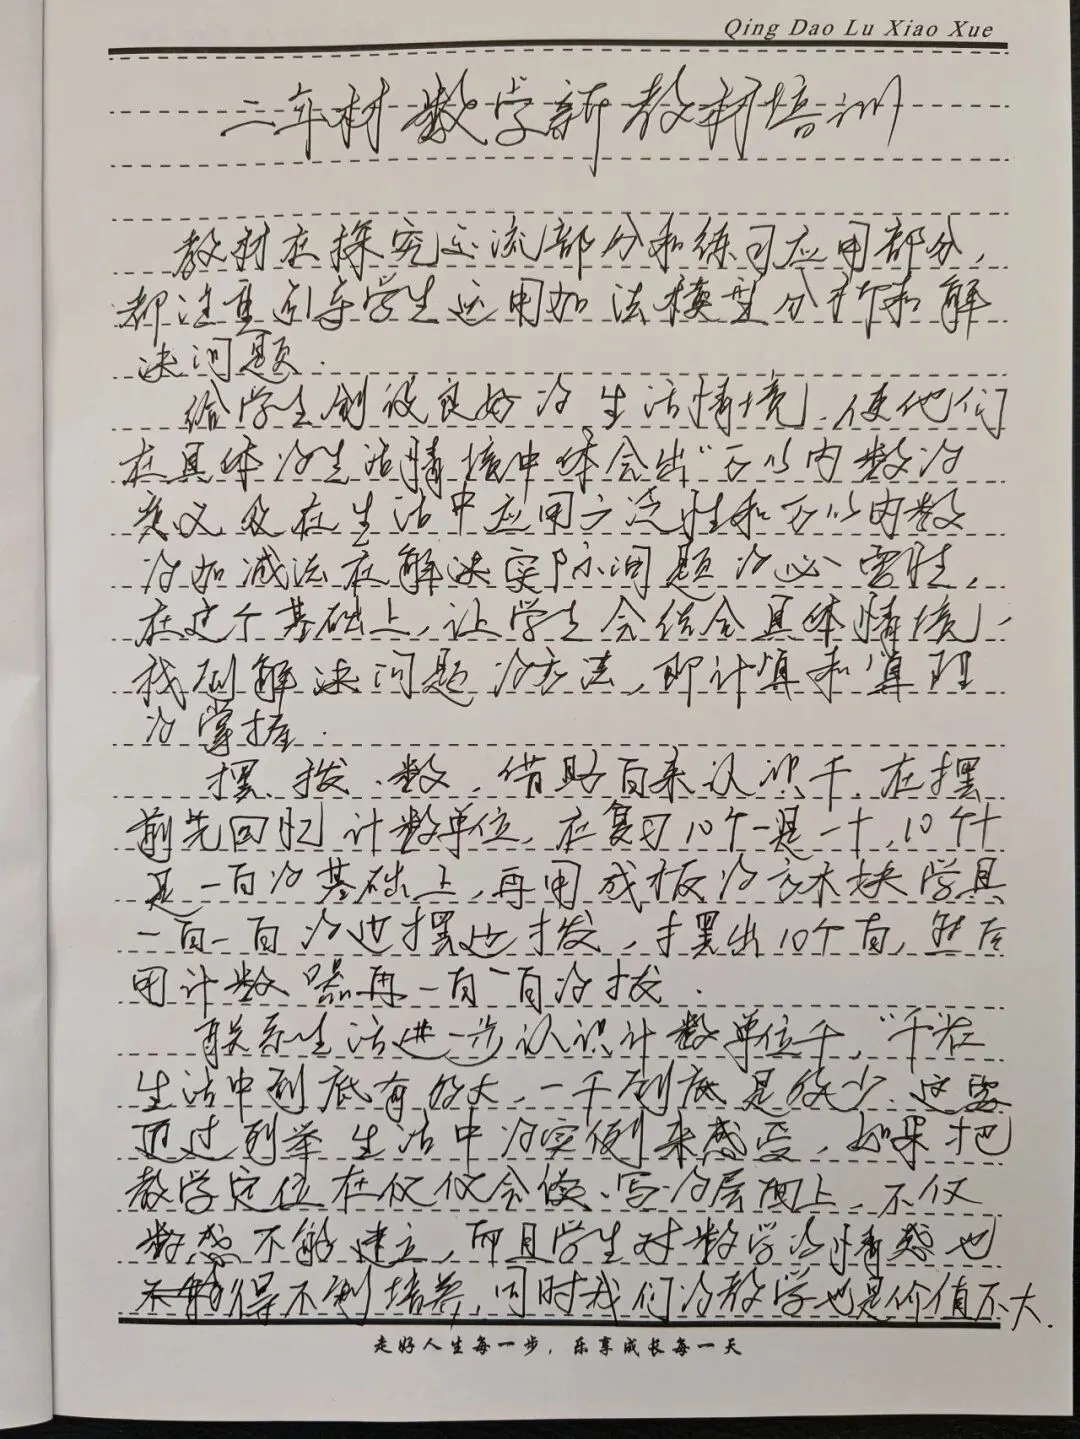 Qing Dao Lu Xiao Xue
二年材数学新教材培训
教材在探究交流部分和练习应用部分，
都注重引导学生运用加法模型分析和解
决问题.
给学生创设良好的生活情境，使他们
在具体的生活情境中体会出“万以内数的
意义及在生活中应用广泛性和万以内数
的加减法在解决实际问题的必要性，
在这个基础上，让学生会结合具体情境，
找到解决问题的方法，即计算和算理
的掌握.
摆、拨、数，借助百来认识千，在摆
前先回忆计数单位，在复习10个一是一十，10个十
是一百的基础上，再用成板的方木块学具
一百一百的边摆边拨，摆出10个百，然后
用计数器再一百一百的拨.
联系生活进一步认识计数单位千，“千”在
生活中到底有多大，一千到底是多少，这需
通过列举生活中的实例来感受，如果把
教学定位在仅仅会读、写的层面上，不仅
数感不能建立，而且学生对数学的情感也
得不到培养，同时我们的教学也是价值不大.
走好人生每一步，乐享成长每一天